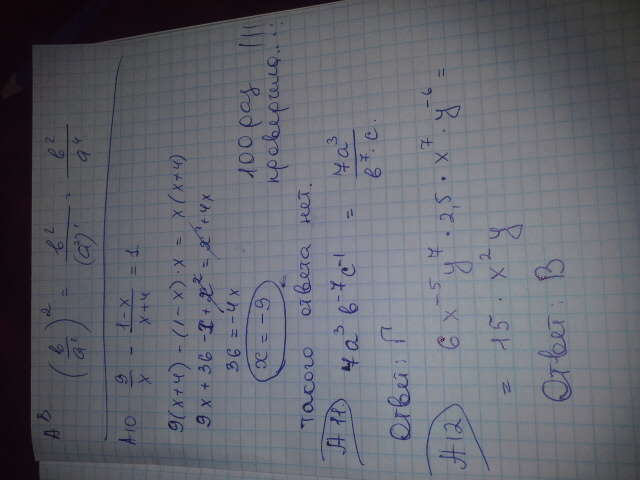 А8 (в/а¹)² = в²/(а²)¹ = в²/а⁴
А10 9/x - 1-x/x+4 = 1
9(x+4) - (1-x)·x = x(x+4)
9x+36-x+x²=x²+4x
36=-4x
x=-9
100 раз
проверила...!!!
Такого ответа нет.
А11 7а³в⁻⁷с⁻¹ = 7а³/в⁷·с.
Ответ: Г
А12 6x⁻⁵y⁷·2,5·x⁷·y⁻⁶=
= 15·x²y
Ответ: В